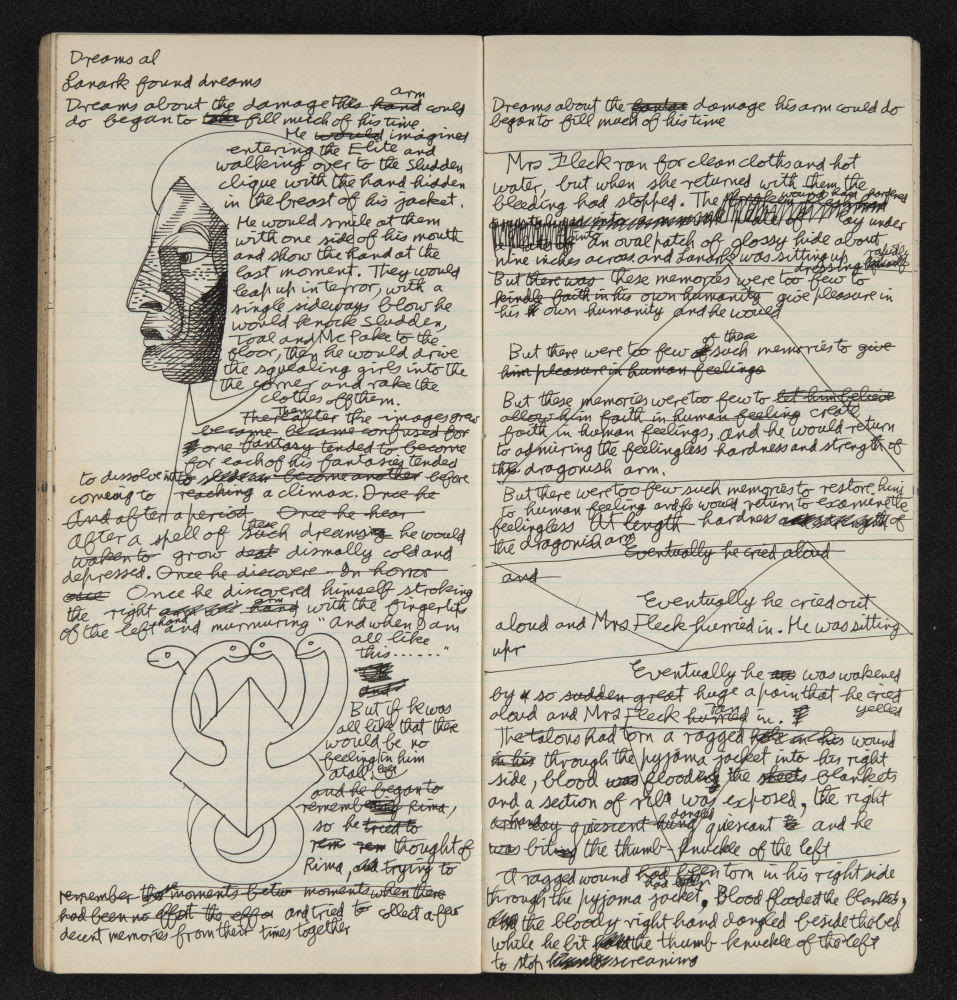 Dreams al
Lanark found dreams
Dreams about the damage this hand arm could
do began to take fill much of his time
He would imagined
entering the Elite and
walking over to the Sludden
clique with the hand hidden
in the breast of his jacket.
He would smile at them
with one side of his mouth
and show the hand at the
last moment. They would
leap up in terror, with a
single sideways blow he
would knock Sludden,
Toal and McPake to the
floor, then he would drive
the squealing girls into the
the corner and rake the
clothes off them.
Then after the images grew
become became confused for
one fantasy tended to become
for each of his fantasies tended
to dissolve into become another before
coming to reaching a climax. Once he
And after a period Once he hear
After a spell of such these dreams he would
waken to grow dismally cold and
depressed. Once he discovere In horror
Once he discovered himself stroking
the right hand arm with the fingertips
of the left hand and murmuring "And when I am
all like
this......"
But if he was
all like that there
would be no
feeling in him
at all
and he began to
remember Rima,
so he tried to
thought of
Rima, trying to
remember the moments betw moments when there
had been no effort the effo and tried to collect a few
decent memories from their times together
Dreams about the damage his arm could do
began to fill much of his time
Mrs Fleck ran for clean cloths and hot
water, but when she returned with them the
bleeding had stopped. The wound had
into lay under
an oval patch of glossy hide about
nine inches across and Lanark was sitting up
dressing himself
But there was these memories were too few to
kindle faith in his own humanity give pleasure in
his own humanity and he would
But there were too few of these such memories to give
him pleasure in human feelings
But these memories were too few to let him believe
allow him faith in human feeling create
faith in human feelings, and he would return
to admiring the feelingless hardness and strength of
the dragonish arm.
But there were too few such memories to restore him
to human feeling and he would return to examine the
feelingless At length hardness and strength of
the dragonish arm
Eventually he cried aloud
and
Eventually he cried out
aloud and Mrs Fleck hurried in. He was sitting
upr
Eventually he was wakened
by so sudden great huge a pain that he cried
yelled
aloud and Mrs Fleck hurried ran in.
The talons had torn a ragged hole in his wound
in his through the pyjama jacket into his right
side, blood was flooding the sheets blankets
and a section of rib was exposed, the right
hand lay quiescent hung danged quiescant and he
was biting the thumb-knuckle of the left
A ragged wound had been torn in his right side
through the pyjama jacket. Blood flooded the blankets,
and the bloody right hand dangled beside the bed
while he bit the thumb-knuckle of the left
to stop himself screaming